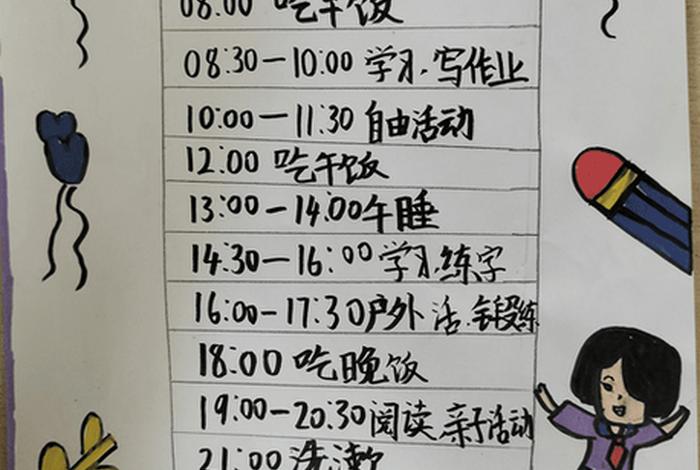 08:00 吃午饭
08:30—10:00 学习.写作业
10:00—11:30 自由活动
12:00 吃午饭
13:00—14:00午睡
14:30—16:00学习.练字
16:00—17:30户外 活.锻练
18:00 吃晚饭
19:00—20:30阅读.亲子活动
21:00 洗漱